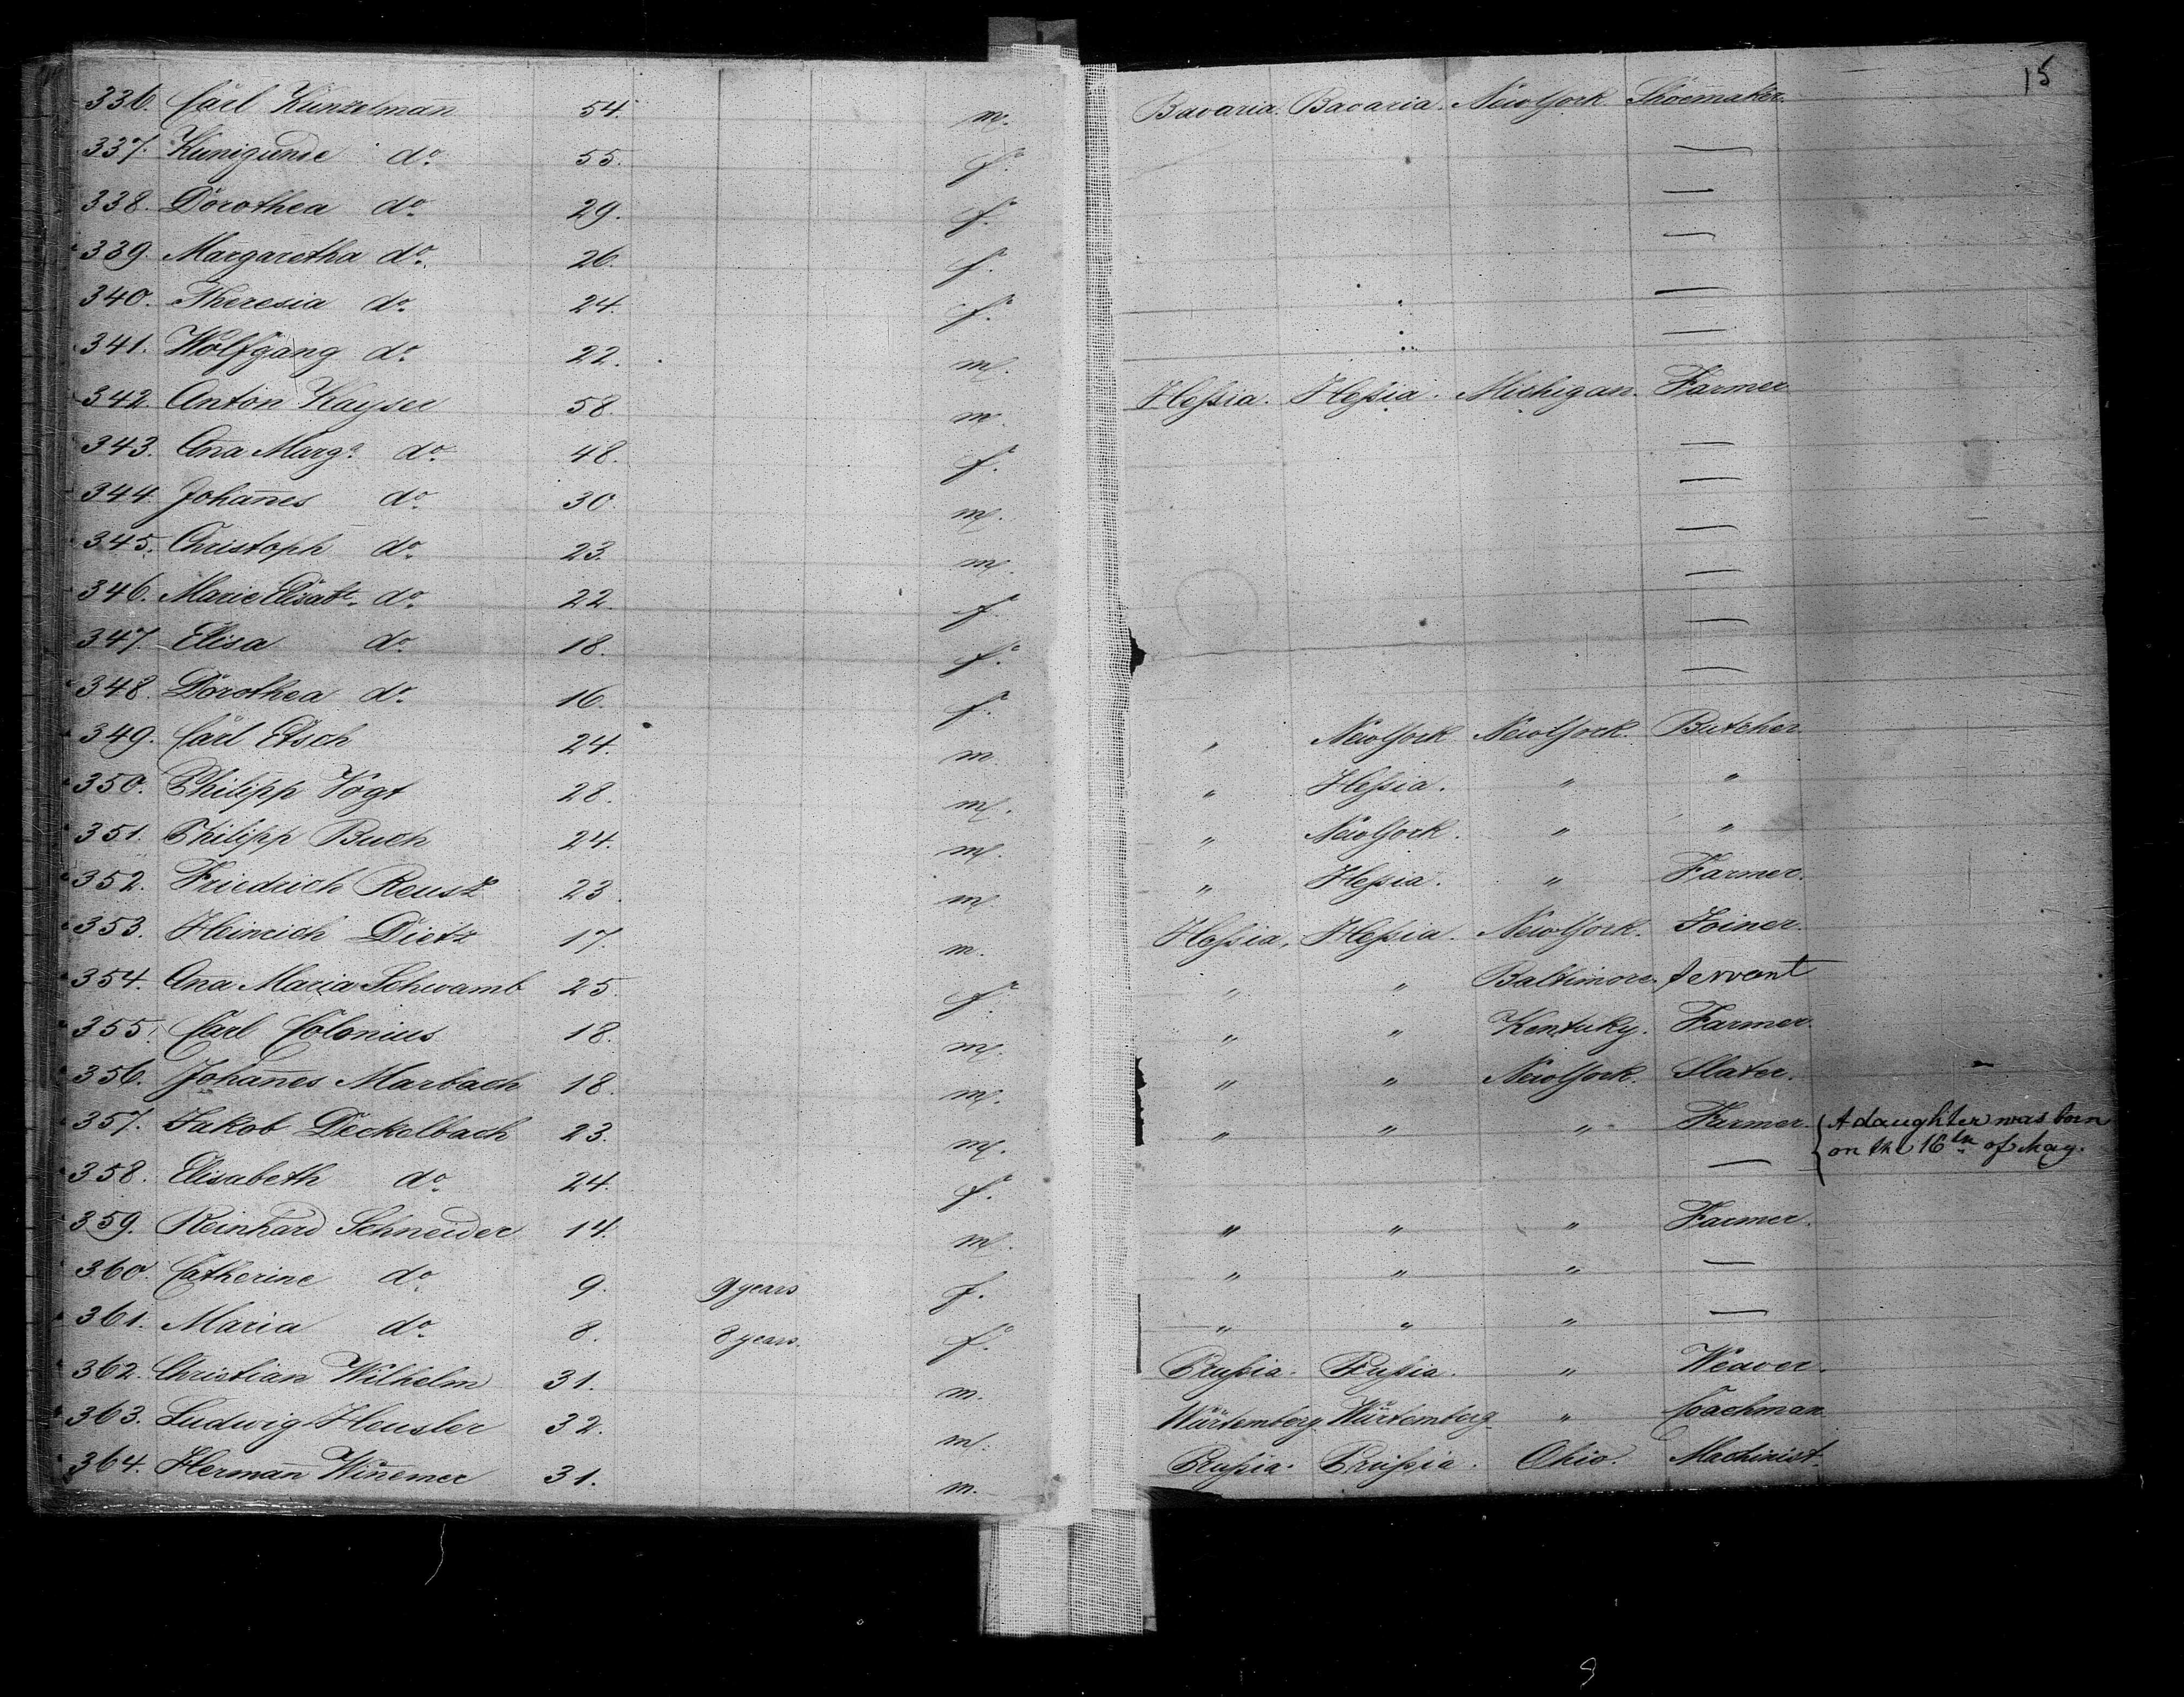 15
336. Carl Kunzelman̄ 54. m. Bavaria. Bavaria. New York Shoemaker.
337. Kunigunde do. 55. f. —
338. Dorothea do. 29. f. —
339. Margaretha do. 26. f. —
340. Theresia do. 24. f. —
341. Wolfgang do. 22. m. —
342. Anton Kayser 58. m. Heſsia. Heſsia. Michigan. Farmer
343. An̄a Marga. do. 48. f. —
344. Johan̄es do. 30. m. —
345. Christoph do. 23. m. —
346. Marie Elisabt. do. 22. f. —
347. Elisa do. 18. f. —
348. Dorothea do. 16. f. —
349. Carl Etsch 24. m. " New York New York. Butcher
350. Philipp Vogt 28. m. " Heſsia. " "
351. Philipp Buch 24. m. " New York. " "
352. Friedrich Reusz 23. m. " Heſsia. " Farmer.
353. Heinrich Dietz 17. m. Heſsia. Heſsia. New York. Joiner.
354. An̄a Maria Schwamb 25. f. " " Baltimore. Servant
355. Carl Colonius 18. m. " " Kentuky. Farmer.
356. Johan̄es Marbach 18. m. " " New York. Slater.
357. Jakob Deckelbach 23. m. " " " Farmer. { A daughter was born
358. Elisabeth do. 24. f. — on the 16th of May.
359. Reinhard Schneider 14. m. " " " Farmer.
360. Catherine do. 9. 9 years f. " " " —
361. Maria do. 8. 8 years. f. " " " —
362. Christian Wilhelm 31. m. Pruſsia. Pruſsia. " Weaver.
363. Ludwig Heusler 32. m. Würtemberg Würtemberg " Coachman
364. Herman̄ Win̄emer 31. m. Pruſsia. Pruſsia. Ohio. Machinist.